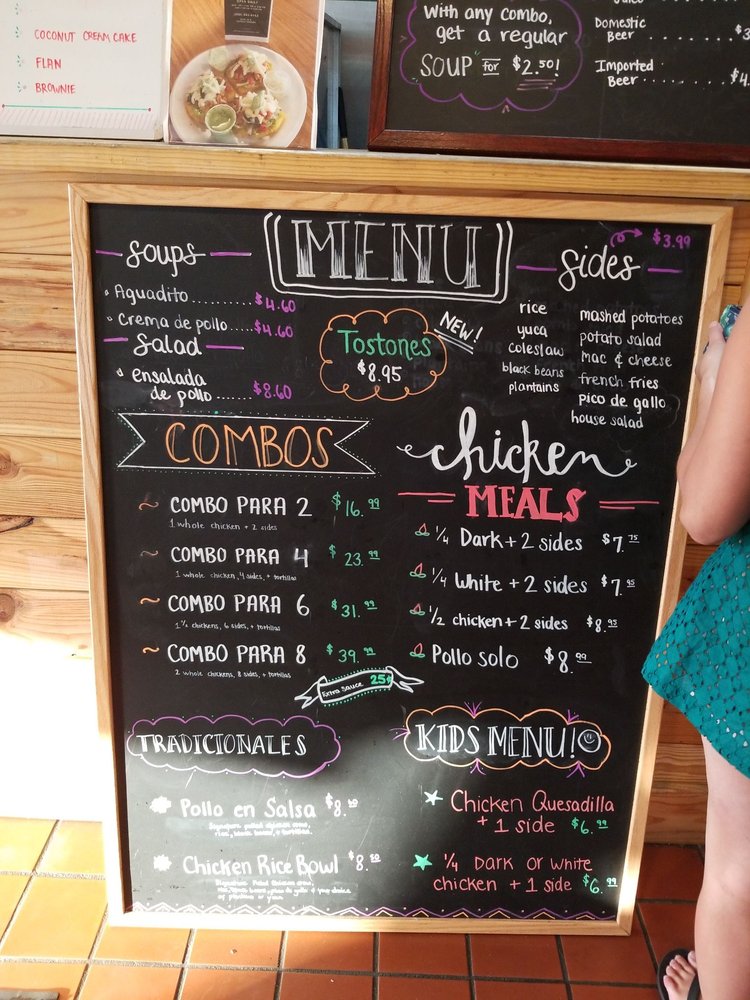 COCONUT CREAM CAKE
FLAN
BROWNIE
With any combo,
get a regular
SOUP for $2.50!
Domestic
Beer ....... $3
Imported
Beer ....... $4.
MENU
soups
Aguadito .......... $4.60
Crema de pollo ..... $4.60
salad
ensalada
de pollo ....... $8.60
Tostones
$8.95
NEW!
sides
$3.99
rice
yuca
coleslaw
black beans
plantains
mashed potatoes
potato salad
mac & cheese
french fries
pico de gallo
house salad
COMBOS
~ COMBO PARA 2 $16.99
1 whole chicken + 2 sides
~ COMBO PARA 4 $23.99
1 whole chicken, 4 sides, + tortillas
~ COMBO PARA 6 $31.99
1 1/2 chickens, 6 sides, + tortillas
~ COMBO PARA 8 $39.99
2 whole chickens, 8 sides, + tortillas
Extra Sauce 25¢
chicken
MEALS
1/4 Dark + 2 sides $7.75
1/4 White + 2 sides $7.95
1/2 chicken + 2 sides $8.95
Pollo solo $8.99
TRADICIONALES
Pollo en Salsa $8.
rice, black beans, + tortillas.
Chicken Rice Bowl $8.50
KIDS MENU!
Chicken Quesadilla
+ 1 side $6.99
1/4 Dark or white
chicken + 1 side $6.99